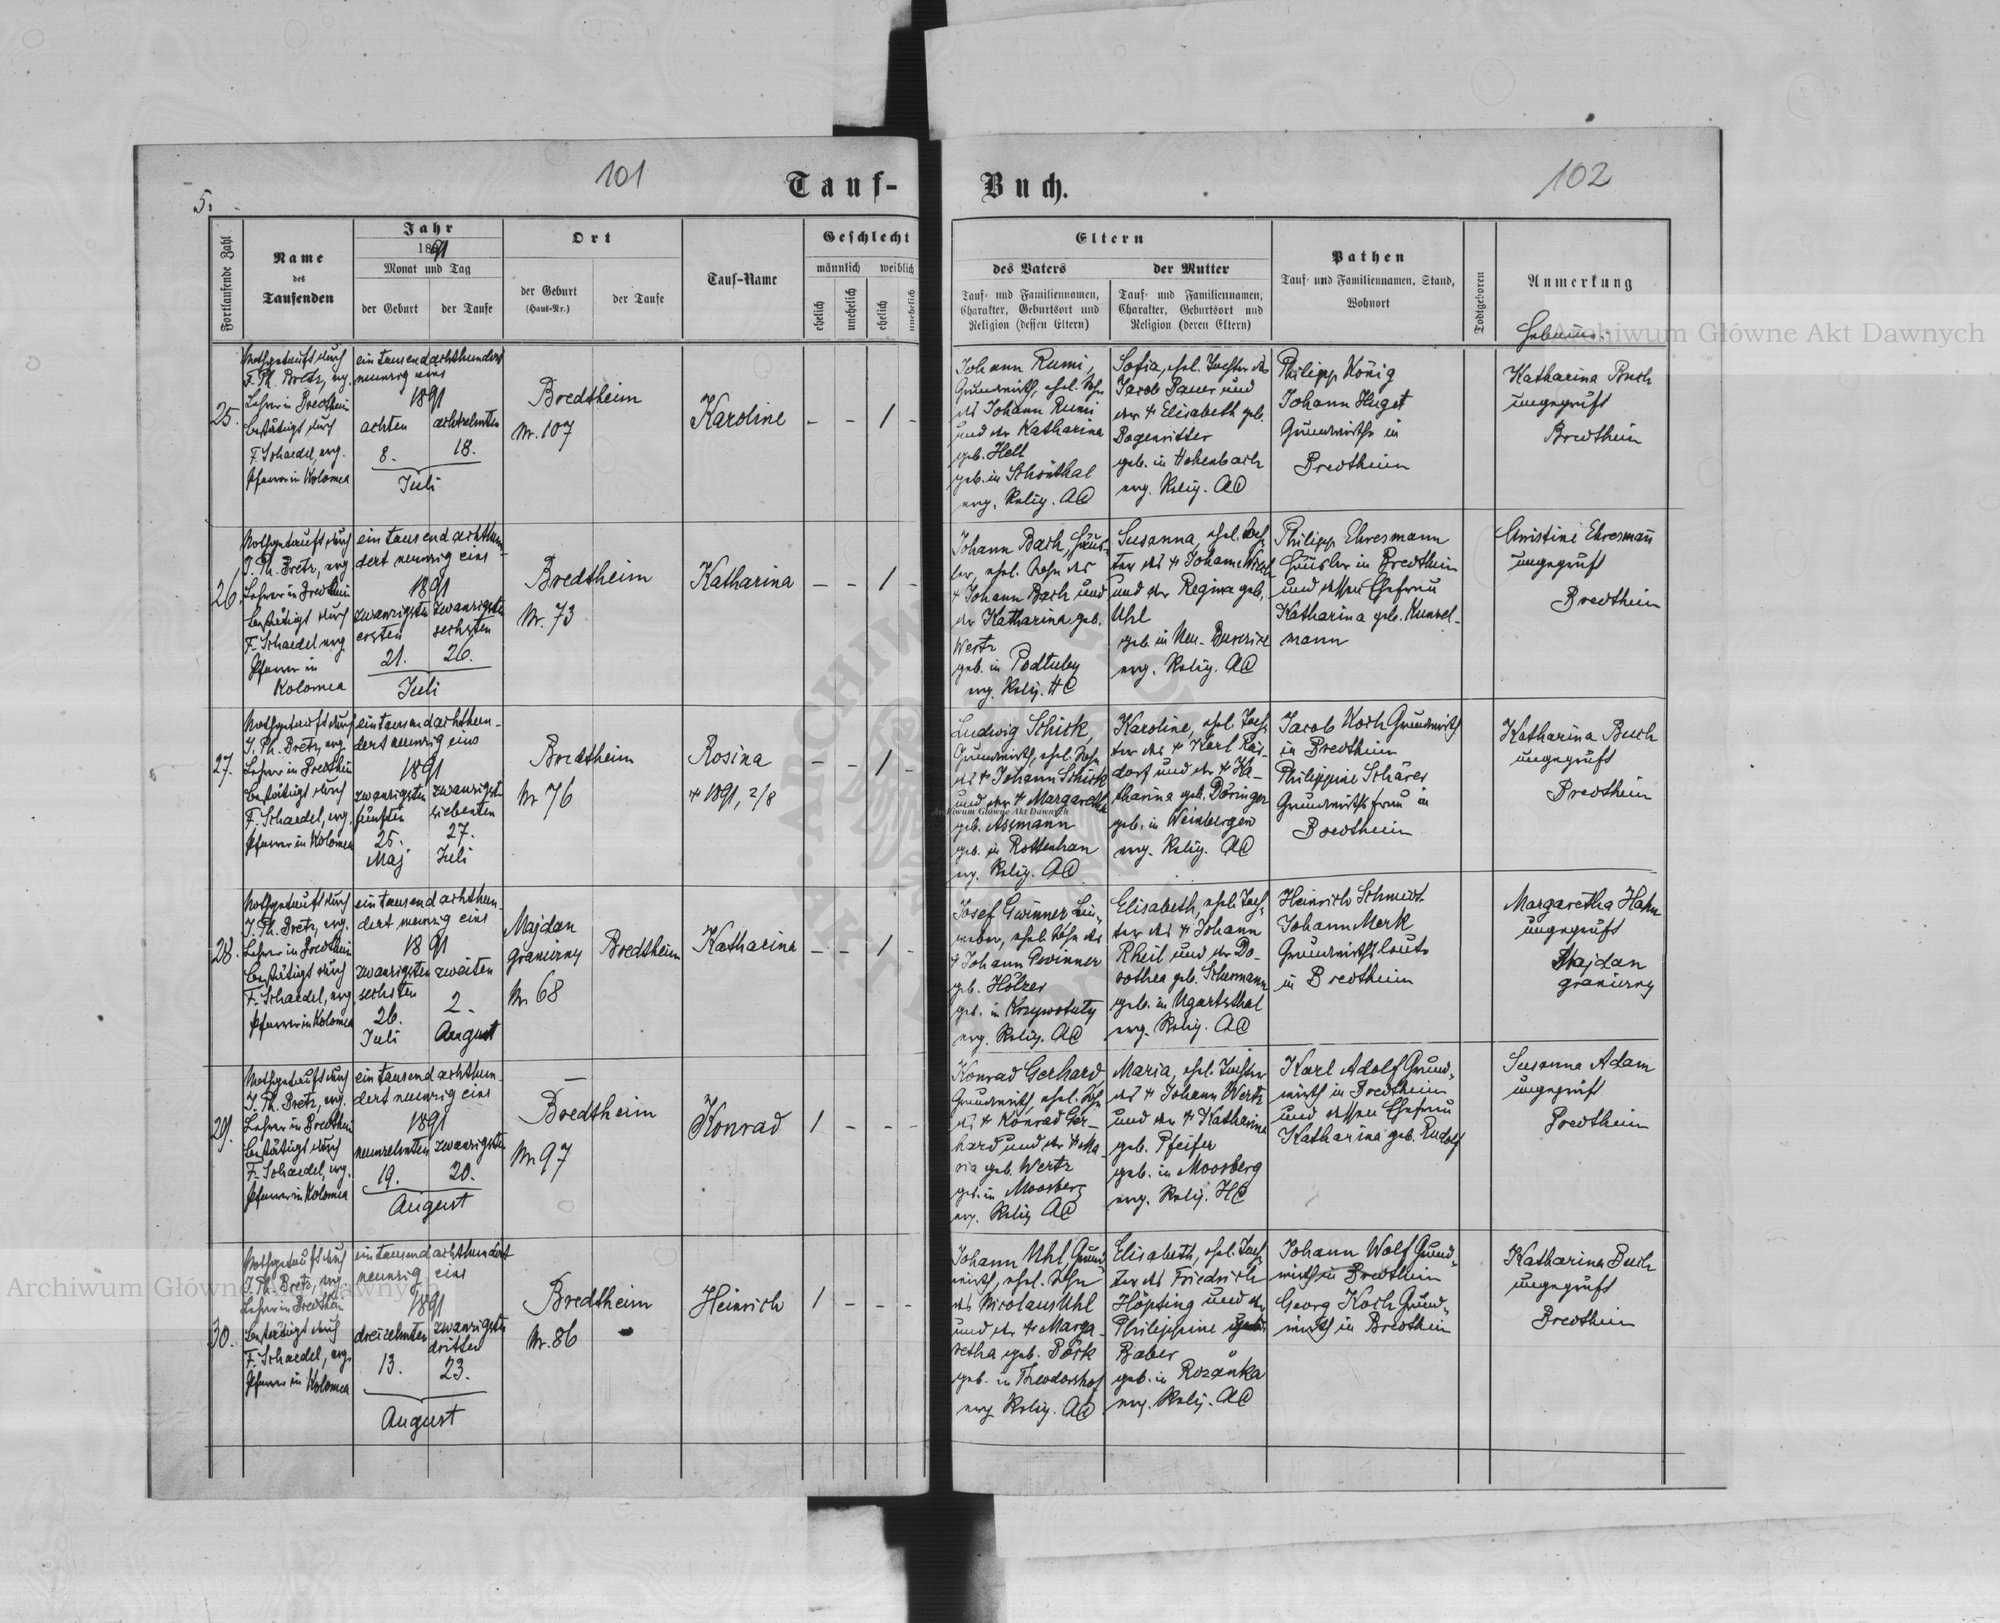 101
Tauf-
5.
Fortlaufende Zahl
Name
des
Taufenden
Jahr
1891
Monat und Tag
der Geburt
der Taufe
Ort
der Geburt
(Haus-Nr.)
der Taufe
Tauf-Name
Geschlecht
männlich
weiblich
ehelich
unehelich
ehelich
unehelich
25.
Nothgetauft durch
F. Ph. Bretz, evg.
Lehrer in Bredtheim
bestätigt durch
F. Schaedel, evg.
Pfarrer in Kolomea
ein tausend achthundert
neunzig eins
1891
achten
achtzehnten
8.
18.
Juli
Bredtheim
Nr. 107
Karoline
- - 1 -
26.
Nothgetauft durch
J. Ph. Bretz, evg
Lehrer in Bredtheim
bestätigt durch
F. Schaedel evg
Pfarrer in
Kolomea
ein tausend achthun-
dert neunzig eins
1891
zwanzigsten zwanzigsten
ersten sechsten
21. 26.
Juli
Bredtheim
Nr. 73
Katharina
- - 1 -
27.
Nothgetauft durch
J. Ph. Bretz, evg.
Lehrer in Bredtheim
bestätigt durch
F. Schaedel, evg.
Pfarrer in Kolomea
ein tausend achthun-
dert neunzig eins
1891
zwanzigsten zwanzigsten
fünften siebenten
25. 27.
Maj Juli
Bredtheim
Nr 76
Rosina
+ 1891, 2/8
- - 1 -
28.
Nothgetauft durch
J. Ph. Bretz, evg.
Lehrer in Bredtheim
bestätigt durch
F. Schaedel, evg.
Pfarrer in Kolomea
ein tausend achthun-
dert neunzig eins
1891
zwanzigsten zweiten
sechsten
26. 2.
Juli August
Majdan
graniczny
Nr 68
Bredtheim
Katharina
- - 1 -
29.
Nothgetauft durch
J. Ph. Bretz, evg.
Lehrer in Bredtheim
bestätigt durch
F. Schaedel, evg.
Pfarrer in Kolomea
ein tausend achthun-
dert neunzig eins
1891
neunzehnten zwanzigsten
19. 20.
August
Bredtheim
Nr 97
Konrad
1 - - -
30.
Nothgetauft durch
J. Ph. Bretz, evg
Lehrer in Bredtheim
bestätigt durch
F. Schaedel, evg.
Pfarrer in Kolomea
ein tausend achthundert
neunzig eins
1891
dreizehnten zwanzigsten
dritten
13. 23.
August
Bredtheim
Nr. 86
Heinrich
1 - - -
102
Buch.
Eltern
des Vaters
Tauf- und Familiennamen,
Charakter, Geburtsort und
Religion (dessen Eltern)
der Mutter
Tauf- und Familiennamen,
Charakter, Geburtsort und
Religion (deren Eltern)
Pathen
Tauf- und Familiennamen, Stand,
Wohnort
Todtgeboren
Anmerkung
Hebamme.
Johann Rumi,
Grundwirth, ehel. Sohn
des Johann Rumi
und der Katharina
geb. Hell
geb. in Schönthal
evg. Relig. AC
Sofia, ehel. Tochter des
Jacob Bauer und
der + Elisabeth geb.
Bogenritter
geb. in Hohenbach
evg. Relig. AC
Philipp König
Johann Huget
Grundwirthe in
Bredtheim
Katharina Buch
ungeprüft
Bredtheim
Johann Bach, Häus-
ler, ehel. Sohn des
+ Johann Bach und
der Katharina geb.
Wertz
geb. in Podtuby
evg. Relig. HC
Susanna, ehel. Toch-
ter des + Johann
und der Regina geb.
Uhl
geb. in Neu-
evg. Relig. AC
Philipp Ehresmann
Häusler in Bredtheim
und dessen Ehefrau
Katharina geb. Kunzel-
mann
Christine Ehresman̄
ungeprüft
Bredtheim
Ludwig Schick,
Grundwirth, ehel. Sohn
des + Johann Schick
und der + Margaretha
geb. Assmann
geb. in Rottenhan
evg. Relig. AC
Karoline, ehel. Toch-
ter des + Karl Rai-
dorf und der + Ka-
tharina geb. Döringer
geb. in Weinbergen
evg. Relig. AC
Jacob Koch Grundwirth
in Bredtheim
Philippine Schärer
Grundwirthsfrau in
Bredtheim
Katharina Buch
ungeprüft
Bredtheim
Josef Gwinner Lein-
weber, ehel. Sohn des
+ Johann Gwinner
geb. Hölzer
geb. in Krzywotuly
evg. Relig. AC
Elisabeth, ehel. Toch-
ter des + Johann
Rheil und der Do-
rothea geb. Schermann
geb. in Ugartsthal
evg. Relig. AC
Heinrich Schmidt
Johann Merk
Grundwirthsleute
in Bredtheim
Margaretha Hahn
ungeprüft
Majdan
graniczny
Konrad Gerhard,
Grundwirth, ehel. Sohn
des + Konrad Ger-
hard und der + Ma-
ria geb. Wertz
geb. in Moosberg
evg. Relig AC
Maria, ehel. Tochter
des + Johann Wertz
und der + Katharina
geb. Pfeifer
geb. in Moosberg
evg. Relig. HC
Karl Adolf Grund-
wirth in Bredtheim
und dessen Ehefrau
Katharina geb. Rudolf
Susanna Adam
ungeprüft
Bredtheim
Johann Uhl Grund-
wirth, ehel. Sohn
des Nicolaus Uhl
und der + Marga-
retha geb. Börk
geb. in Theodorshof
evg Relig. AC
Elisabeth, ehel. Toch-
ter des Friedrich
Höpting und der
Philippine geb.
Baber
geb. in Rozanka
evg. Relig. AC
Johann Wolf Grund-
wirth in Bredtheim
Georg Koch Grund-
wirth in Bredtheim
Katharina Buch
ungeprüft
Bredtheim
Archiwum Główne Akt Dawnych
Archiwum Główne Akt Dawnych
Archiwum Główne Akt Dawnych